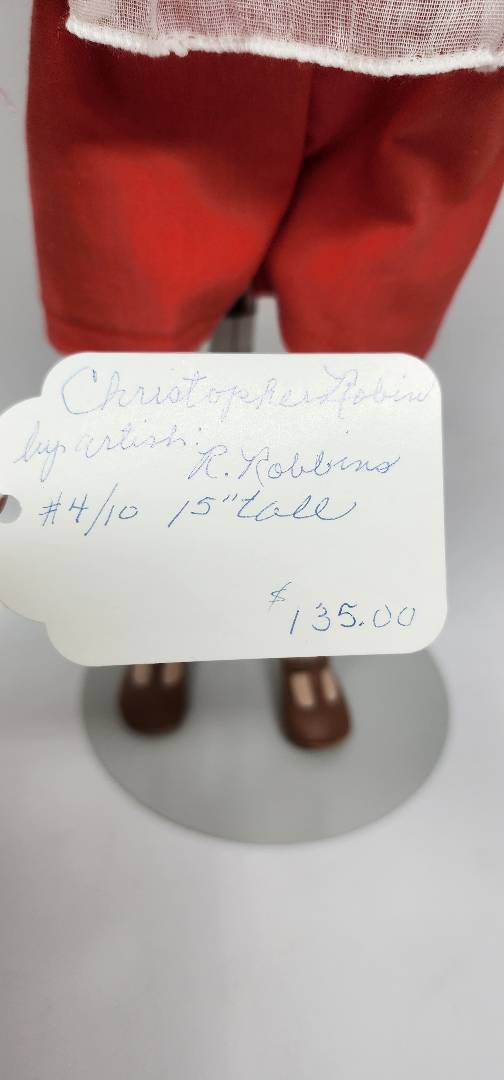 Christopher Robin
by artist:
R. Robbins
#4/10 15" tall
$135.00